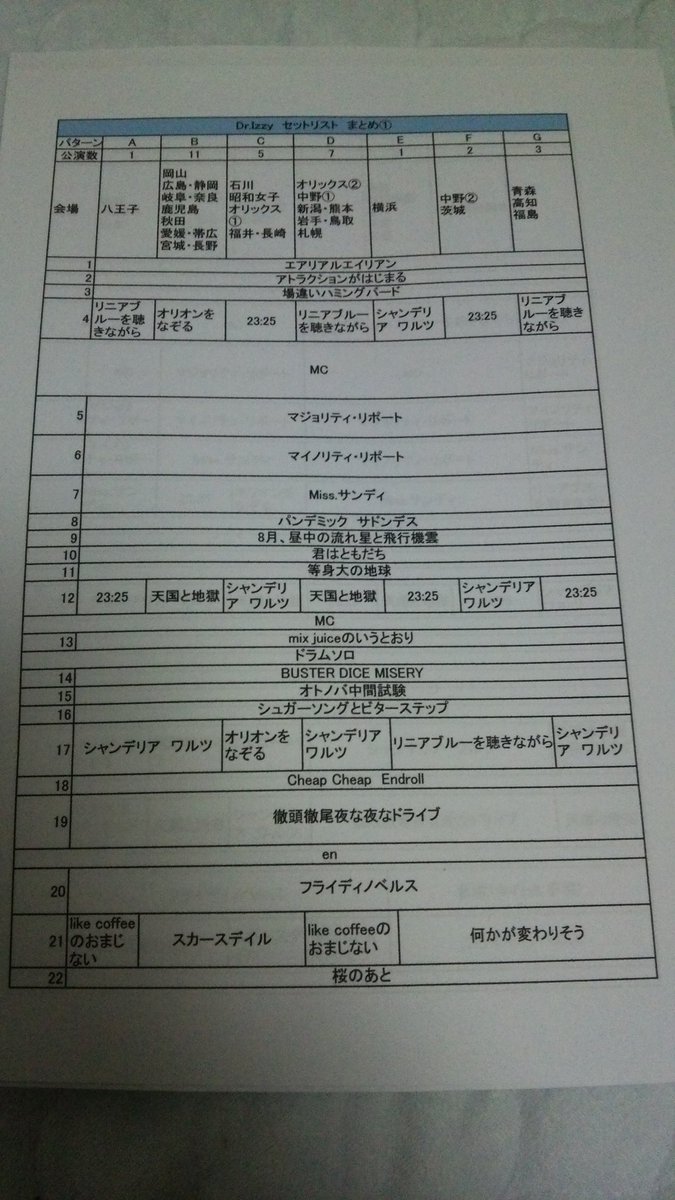 Dr.Izzy セットリスト まとめ①
パターン A B C D E F G
公演数 1 11 5 7 1 2 3
会場
八王子
岡山
広島・静岡
岐阜・奈良
鹿児島
秋田
愛媛・帯広
宮城・長野
石川
昭和女子
オリックス
①
福井・長崎
オリックス②
中野①
新潟・熊本
岩手・鳥取
札幌
横浜
中野②
茨城
青森
高知
福島
1 エアリアルエイリアン
2 アトラクションがはじまる
3 場違いハミングバード
4
リニアブ
ルーを聴
きながら
オリオンを
なぞる
23:25
リニアブルー
を聴きながら
シャンデリ
ア ワルツ
23:25
リニアブ
ルーを聴き
ながら
MC
5 マジョリティ・リポート
6 マイノリティ・リポート
7 Miss.サンディ
8 パンデミック サドンデス
9 8月、昼中の流れ星と飛行機雲
10 君はともだち
11 等身大の地球
12
23:25
天国と地獄
シャンデリ
ア ワルツ
天国と地獄
23:25
シャンデリア
ワルツ
23:25
MC
13 mix juiceのいうとおり
ドラムソロ
14 BUSTER DICE MISERY
15 オトノバ中間試験
16 シュガーソングとビターステップ
17
シャンデリア ワルツ
オリオンを
なぞる
シャンデリア
ワルツ
リニアブルーを聴きながら
シャンデリ
ア ワルツ
18 Cheap Cheap Endroll
19 徹頭徹尾夜な夜なドライブ
en
20 フライディノベルス
21
like coffee
のおまじ
ない
スカースデイル
like coffeeの
おまじない
何かが変わりそう
22 桜のあと